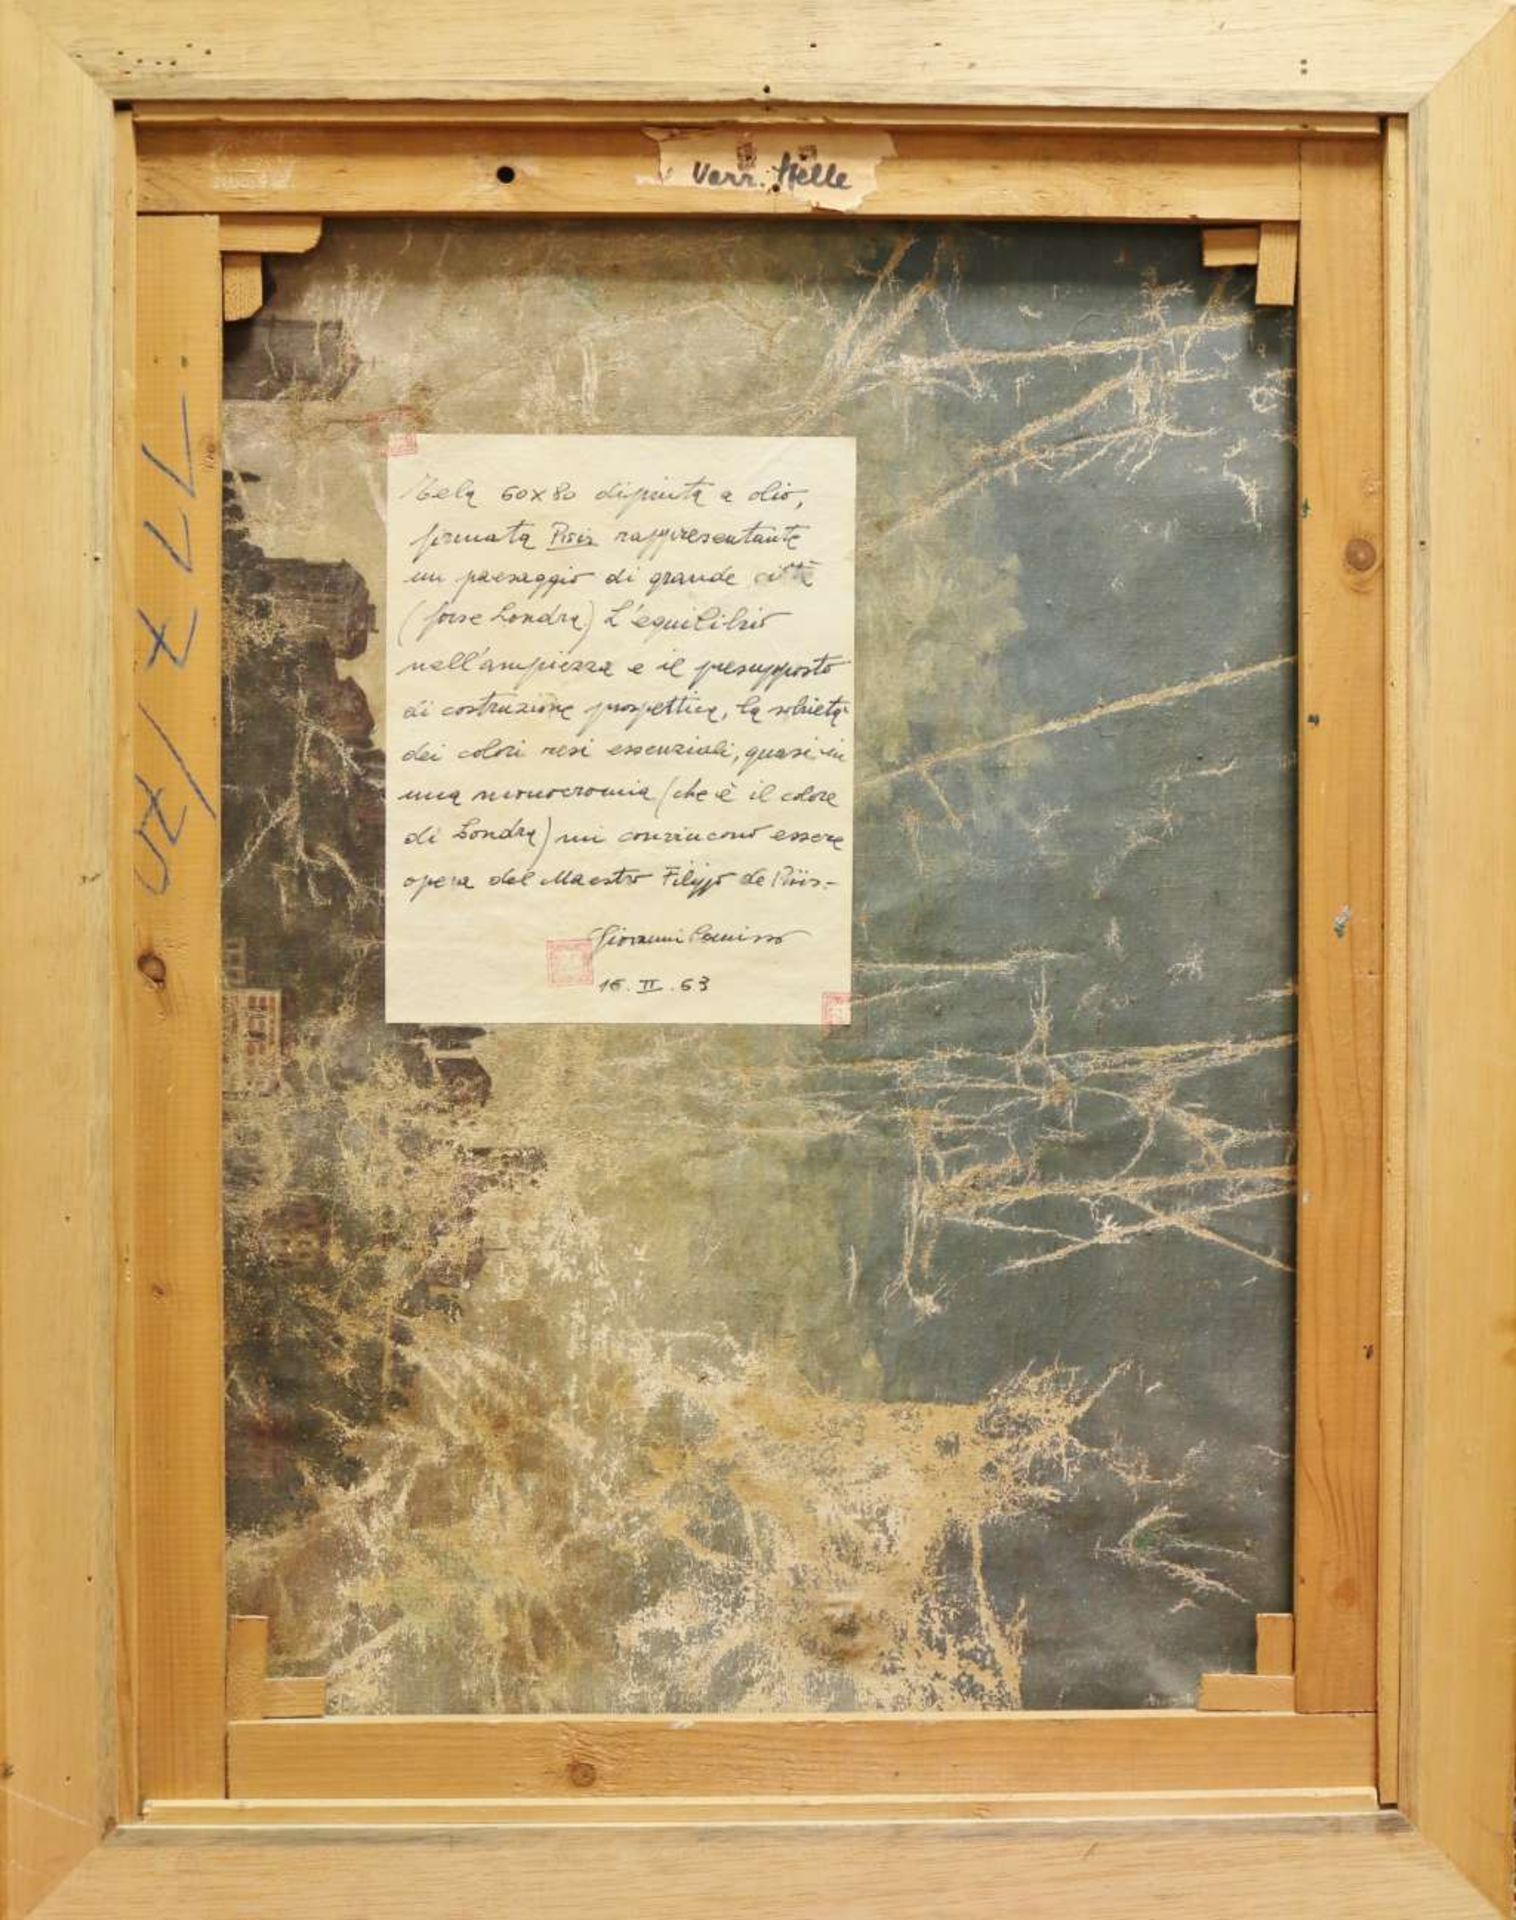 Verr. Stelle
Tela 60x80 dipinta a olio,
firmata Pisis rappresentante
un paesaggio di grande città
(forse Londra) L'equilibrio
nell'ampiezza e il presupposto
di costruzione prospettica, la sobrietà
dei colori resi essenziali, quasi in
una monocromia (che è il colore
di Londra) mi convincono essere
opera del Maestro Filippo de Pisis.-
Giovanni Comisso
16. II. 63